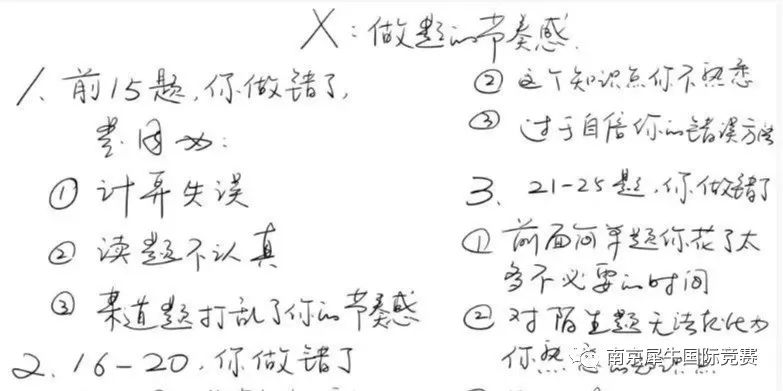 X：做题的节奏感
1、前15题，你做错了，
是因为：
① 计算失误
② 读题不认真
③ 某道题打乱了你的节奏感
2、16-20，你做错了
② 这个知识点你不熟悉
③ 过于自信你的错误方法
3、21-25题，你做错了
① 前面简单题你花了太
多不必要的时间
② 对陌生题无法转化为
你熟
南京犀牛国际竞赛